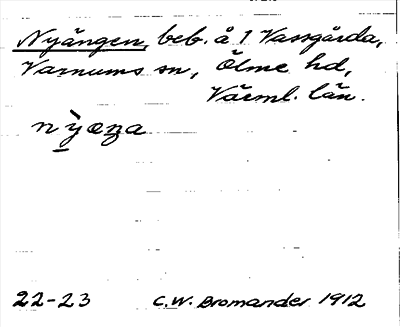 Nyängen, beb. å 1 Vassgårda,
Varnums sn, Ölme hd,
Värml. län.
nỳæŋa
22-23 C.W. Bromander 1912